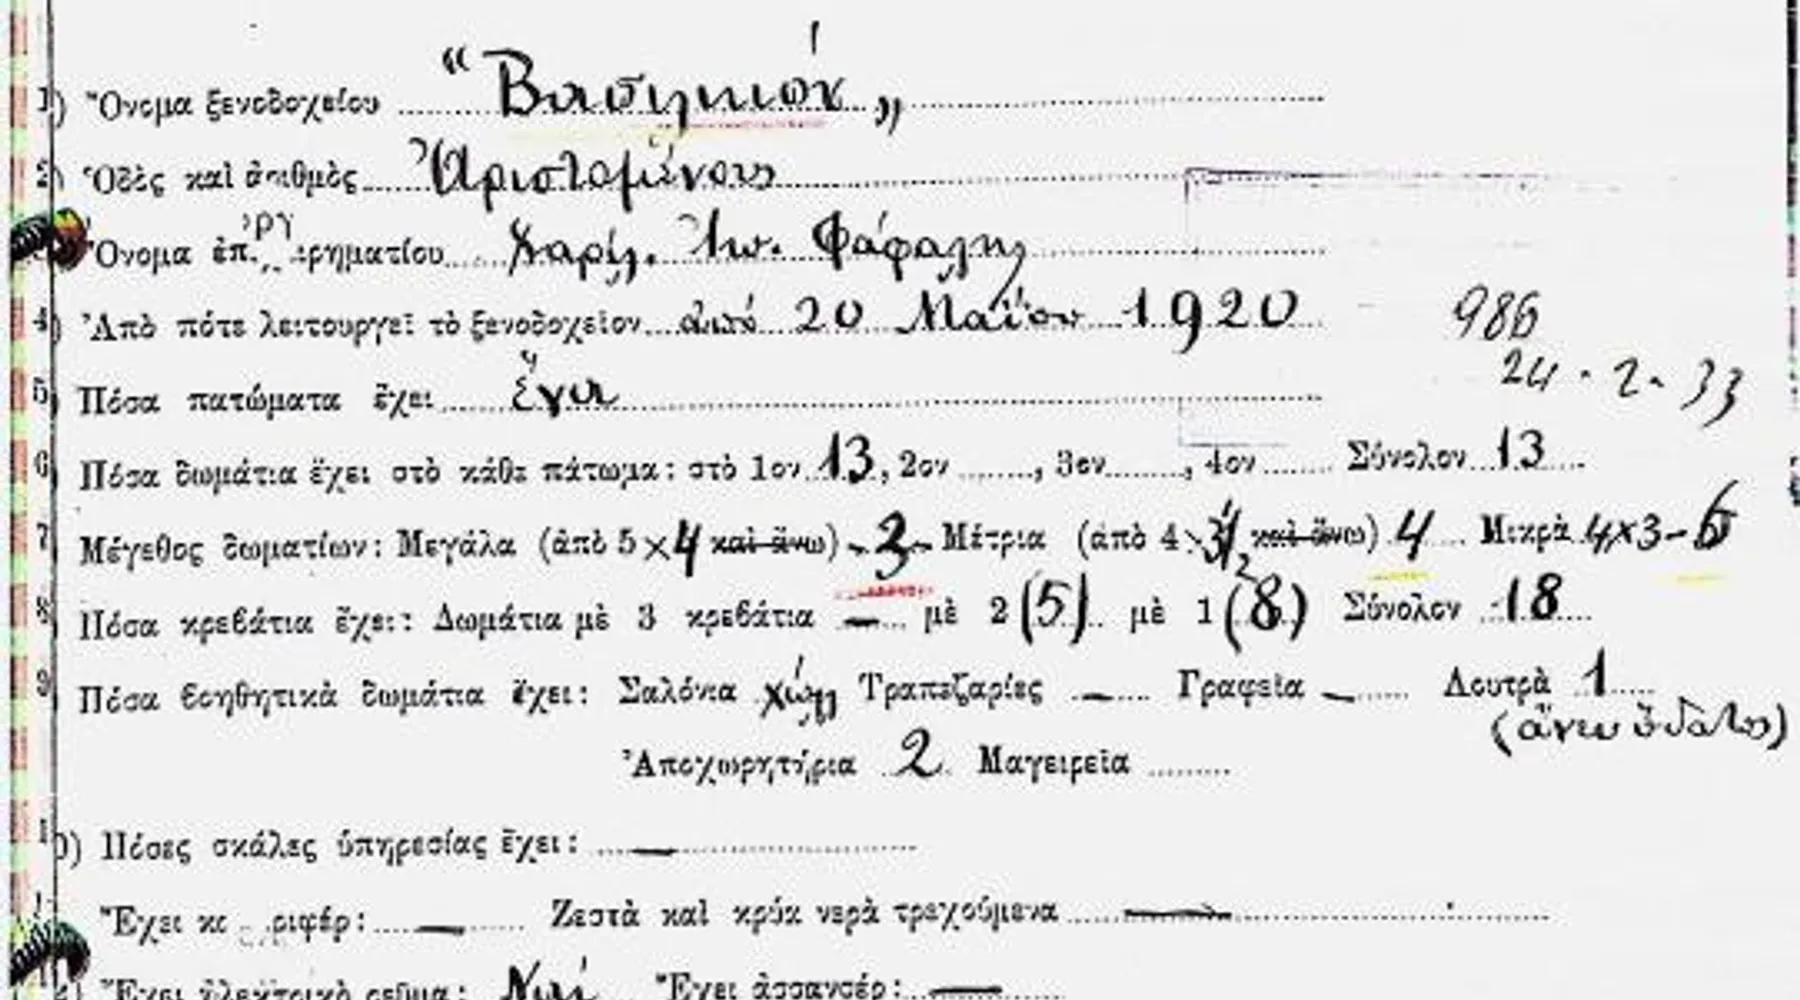 1) Ὄνομα ξενοδοχείου "Βασιλικόν"
2) Ὁδὸς καὶ ἀριθμὸς Ἀριστομένους
Ὄνομα ἐπ. ρημα­τίου Χαρίλ. Ἰω. Φάφαλης
4) Ἀπὸ πότε λειτουργεῖ τὸ ξενοδοχεῖον ἀπό 20 Μαΐου 1920 986
24 - 2 - 33
5) Πόσα πατώματα ἔχει ἕνα
6 Πόσα δωμάτια ἔχει στὸ κάθε πάτωμα: στὸ 1ον 13, 2ον , 3ον , 4ον Σύνολον 13
7 Μέγεθος δωματίων: Μεγάλα (ἀπὸ 5×4 καὶ ἄνω) - 3 - Μέτρια (ἀπὸ 4 × 3½ καὶ ἄνω) 4 Μικρὰ 4×3-6
8 Πόσα κρεβάτια ἔχει: Δωμάτια μὲ 3 κρεβάτια — μὲ 2 (5) μὲ 1 (8) Σύνολον 18
9 Πόσα βοηθητικὰ δωμάτια ἔχει: Σαλόνια χώλ Τραπεζαρίες — Γραφεῖα — Λουτρὰ 1
(ἄνευ ὕδατος)
Ἀποχωρητήρια 2 Μαγειρεῖα
10) Πόσες σκάλες ὑπηρεσίας ἔχει: —
Ἔχει — Ζεστὰ καὶ κρύα νερὰ τρεχούμενα —
Ἔχει ἠλεκτρικὸ ρεῦμα: Ναί Ἔχει ἀσσανσέρ: —